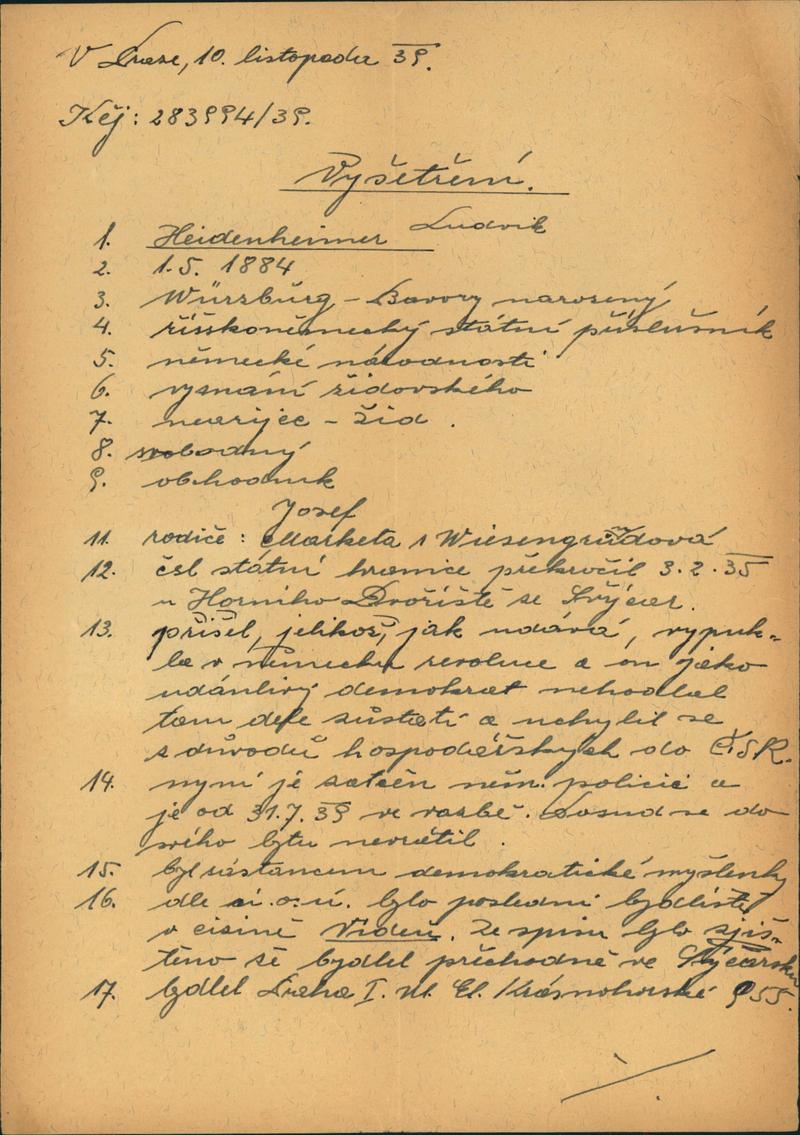 V Praze, 10. listopadu 39.
Kčj: 283994/39.
Vyšetření.
1. Heidenheimer Ludvik
2. 1.5. 1884
3. Würzbürg – Bavory narozený
4. říšskoněmecký státní příslušník
5. německé národnosti
6. vyznání židovského
7. nearijec – žid.
8. svobodný
9. obchodník
Josef
11. rodiče: Marketa r Wiesengrundová
12. čsl státní hranice překročil 3.2.35
u Horního Dvořiště ze Švýcar.
13. přišel, jelikož, jak udává, vypuk-
la v německu revoluce a on jako
údánlivý demokrat nehodlal
tam dele zůstati a uchylil se
z důvodů hospodářských do ČSR.
14. nyní je zatčen něm. policií a
je od 31.7.39 ve vazbě. Dosud se do
svého bytu nevrátil.
15. byl zástancem demokratické myšlenky
16. dle bylo poslední bydliště
v cizině Vídeň. Ze spisu bylo zjiš-
těno že bydlel přechodně ve Švýcarsku
17. bydlel Praha I. Ul. El. Krásnohorské 955.